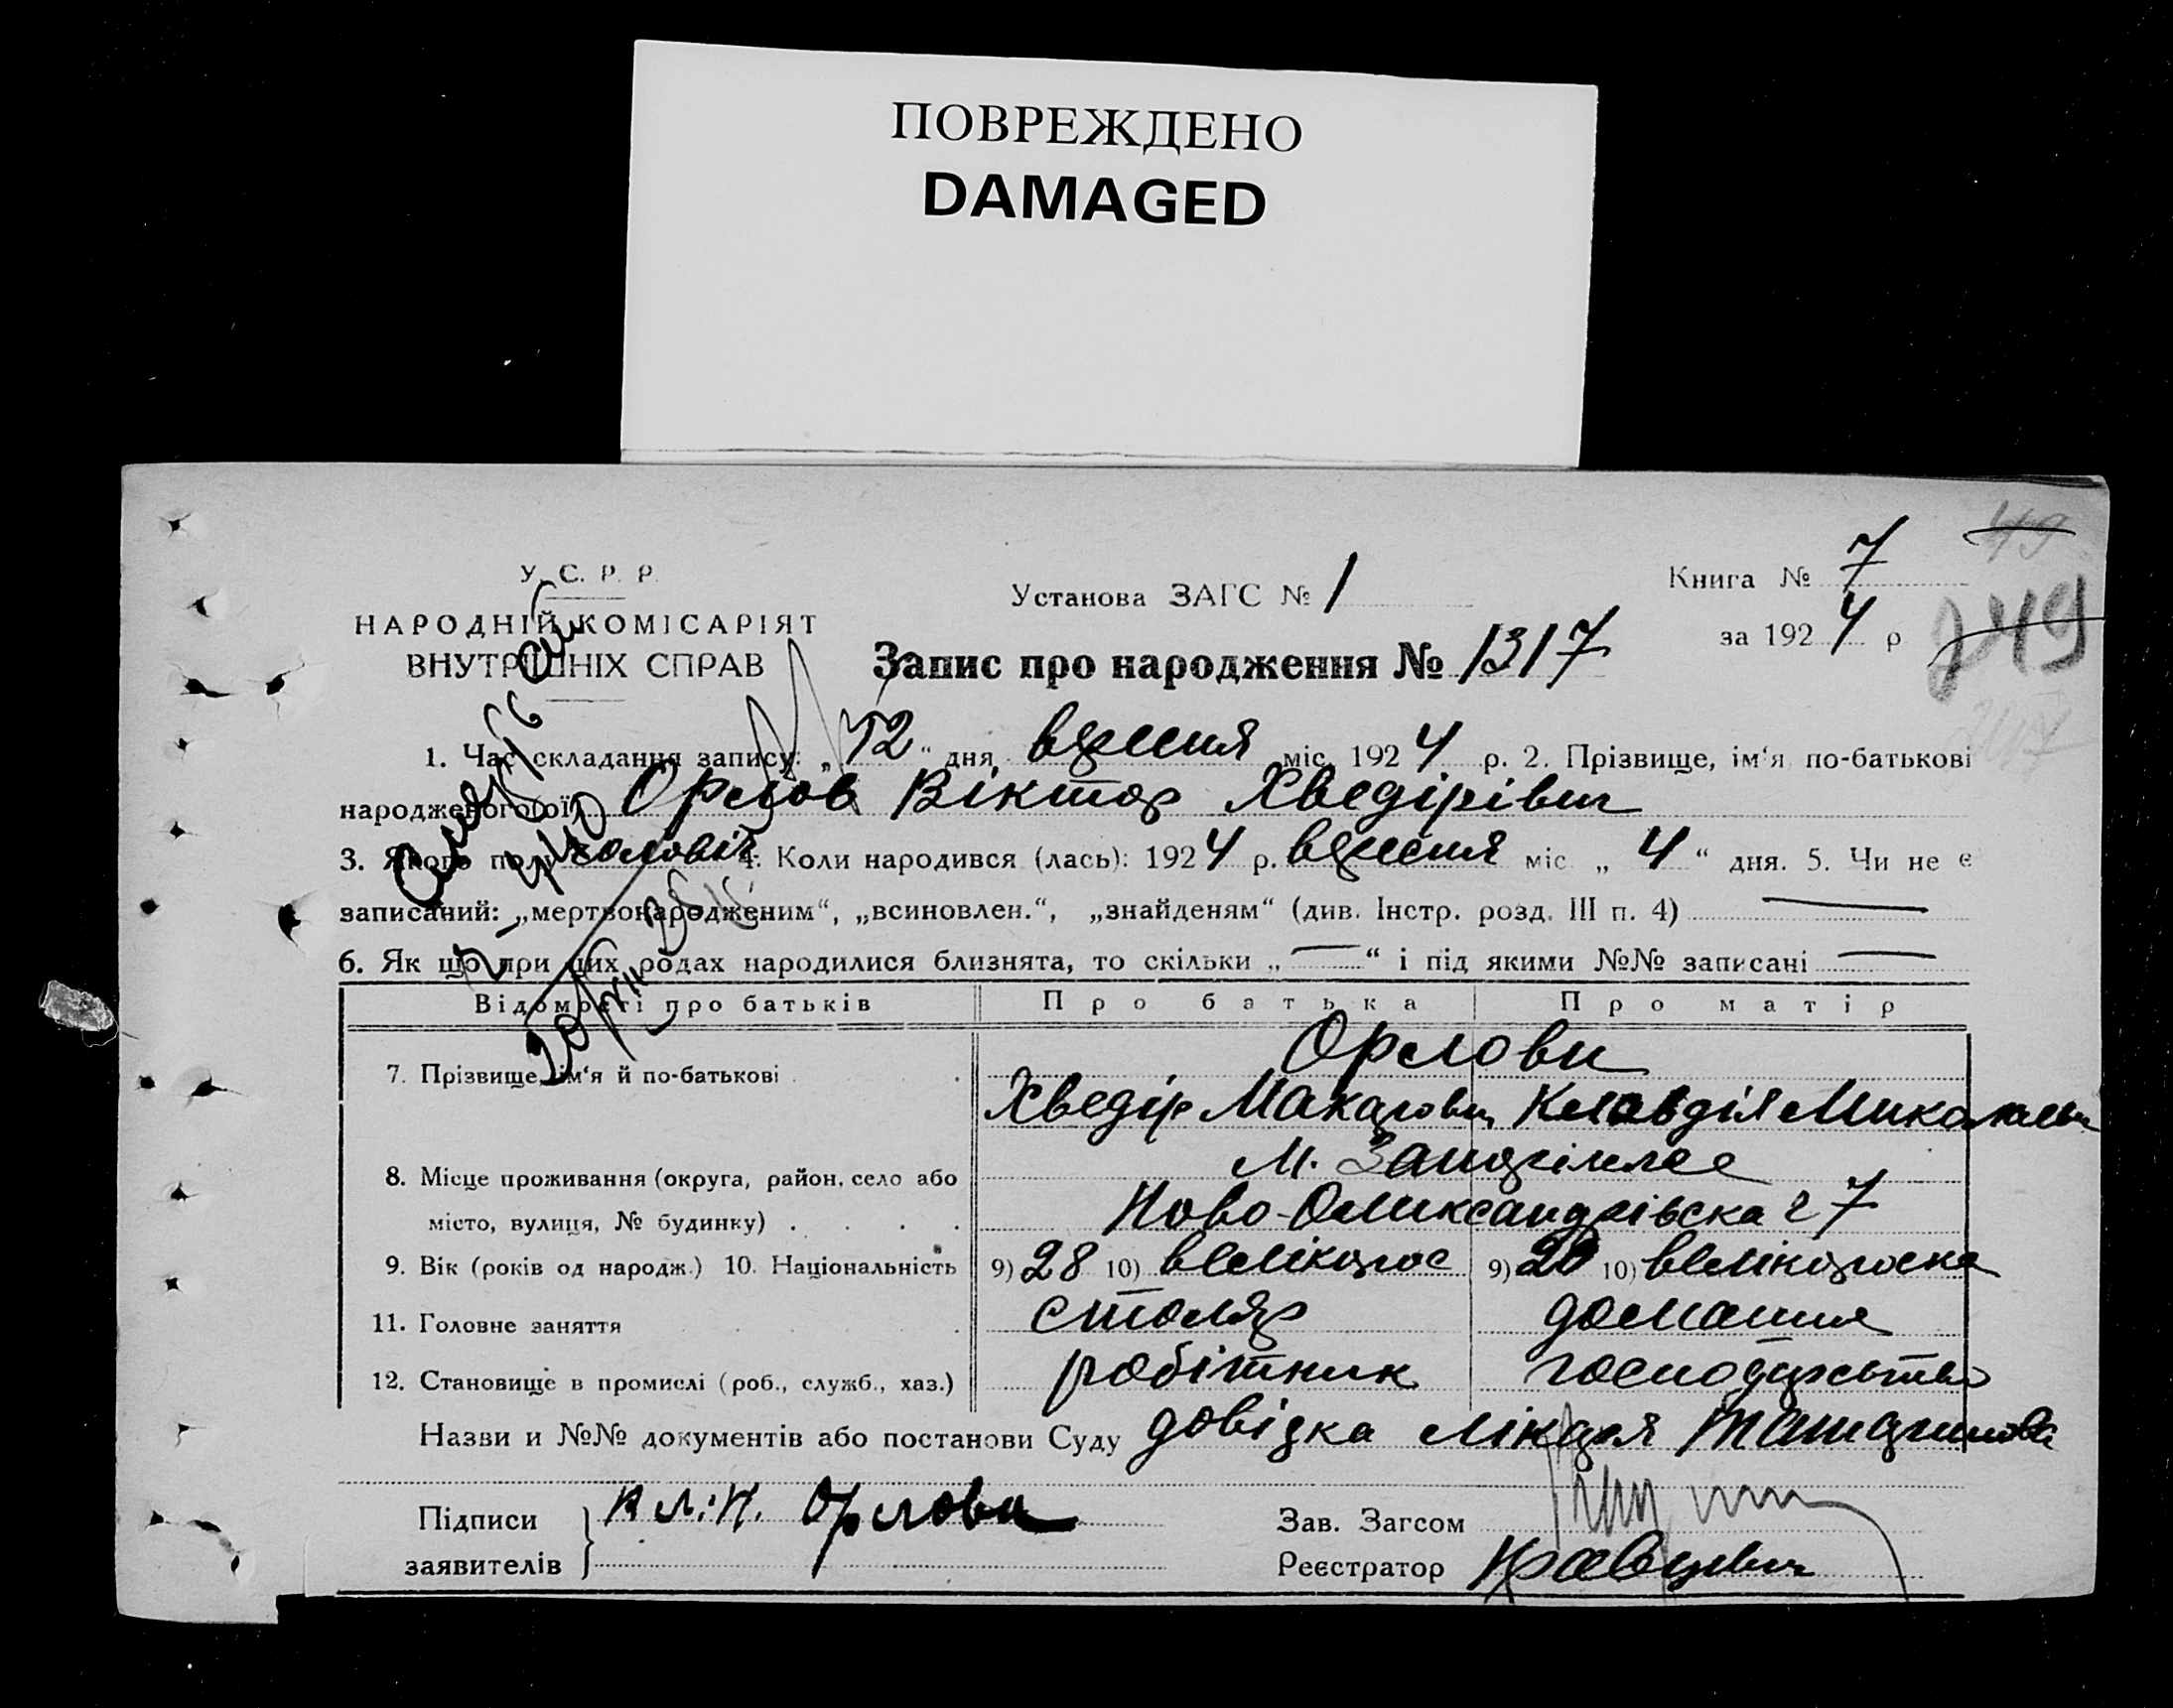 ПОВРЕЖДЕНО
DAMAGED
49
У. С. Р. Р.
НАРОДНІЙ КОМІСАРІЯТ
ВНУТРІШНІХ СПРАВ
Установа ЗАГС № 1
Книга № 7
за 1924 р
249
Запис про народження № 1317
1. Час складання запису: „12“ дня вересня міс. 1924 р. 2. Прізвище, ім‘я по-батькові
народженого(ої) Орлов Віктор Хведірівич
3. Якого полу чоловіч 4. Коли народився (лась): 1924 р. вересня міс „4“ дня. 5. Чи не є
записаний: „мертвонародженим“, „всиновлен.“, „знайденям“ (див. Інстр. розд. III п. 4) —
6. Як що при цих родах народилися близнята, то скільки „—“ і під якими №№ записані —
Відомості про батьків Про батька Про матір
7. Прізвище, ім‘я й по-батькові Орлови
Хведір Макарович Клавдія Миколаевн
8. Місце проживання (округа, район, село або м. Запоріжжє
місто, вулиця, № будинку) Ново-Олександрівска 7
9. Вік (років од народж.) 10. Національність 9) 28 10) велікорос 9) 20 10) велікороска
11. Головне заняття столяр домашнє
12. Становище в промислі (роб., служб., хаз.) робітник господарство
Назви и №№ документів або постанови Суду довідка лікаря
Підписи Кл. Н. Орлова Зав. Загсом
заявителів Реєстратор Кравцевич